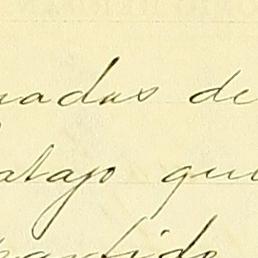 uadas de
atajo que
partido